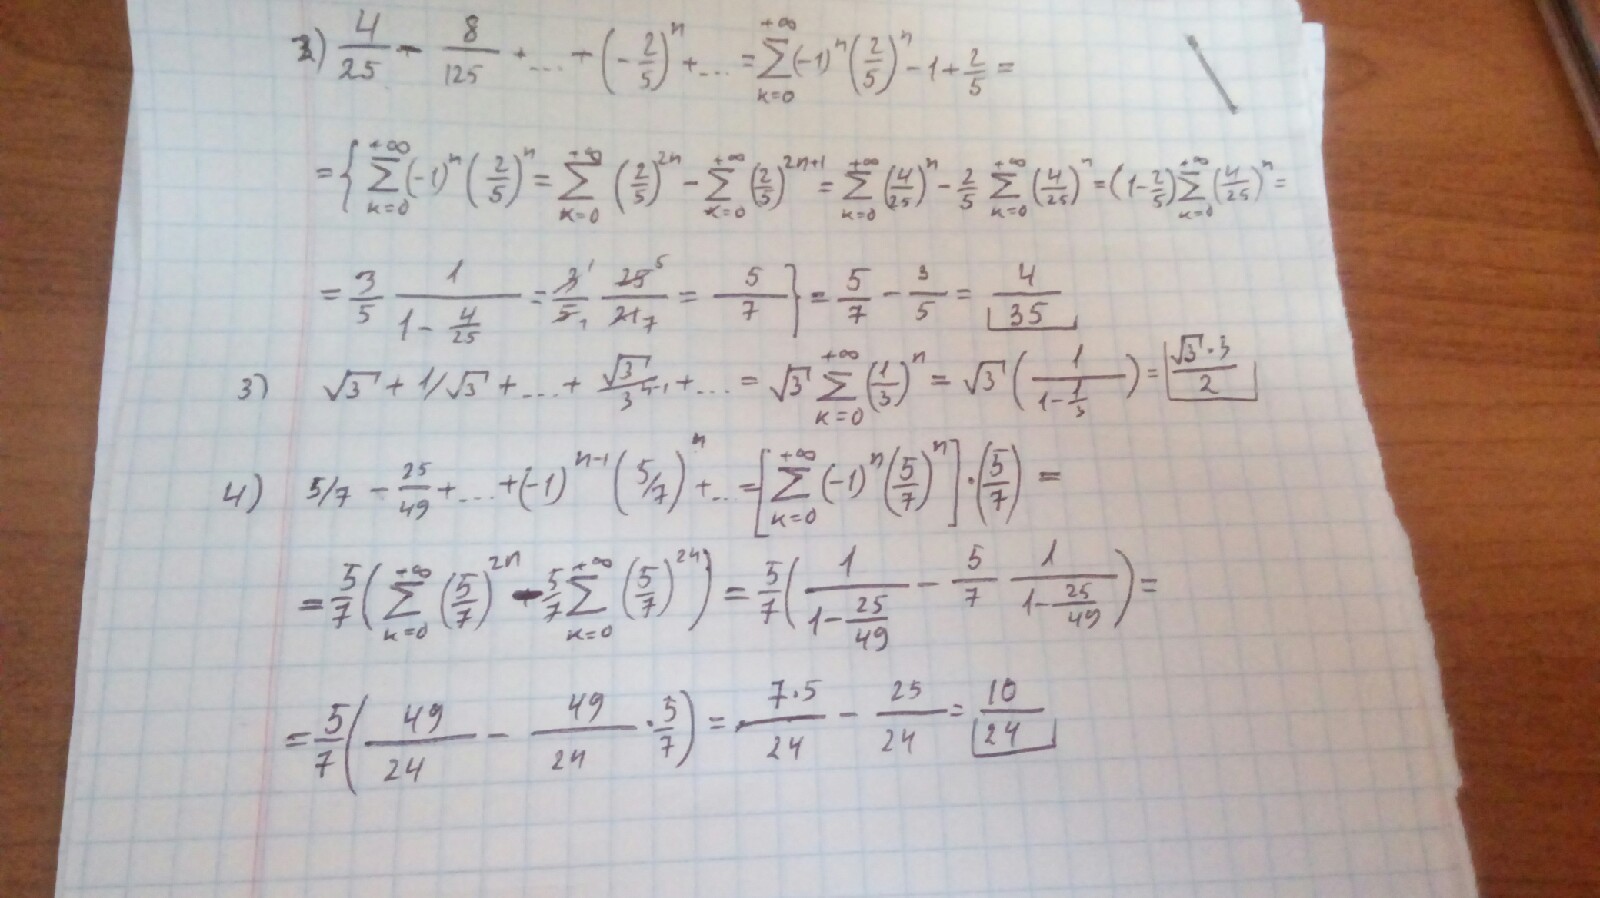 2) 4/25 - 8/125 + ... + (-2/5)^n + ... = ∑_{k=0}^{+∞} (-1)^n (2/5)^n - 1 + 2/5 =
= { ∑_{k=0}^{+∞} (-1)^n (2/5)^n = ∑_{k=0}^{+∞} (2/5)^{2n} - ∑_{k=0}^{+∞} (2/5)^{2n+1} = ∑_{k=0}^{+∞} (4/25)^n - 2/5 ∑_{k=0}^{+∞} (4/25)^n = (1 - 2/5) ∑_{k=0}^{+∞} (4/25)^n =
= 3/5 1/(1 - 4/25) = 3^1/5_1 25^5/21_7 = 5/7 } = 5/7 - 3/5 = 4/35
3) √3 + 1/√3 + ... + √3/3^{n-1} + ... = √3 ∑_{k=0}^{+∞} (1/3)^n = √3 (1/(1 - 1/3)) = √3·3/2
4) 5/7 - 25/49 + ... + (-1)^{n-1} (5/7)^n + ... = [∑_{k=0}^{+∞} (-1)^n (5/7)^n]·(5/7) =
= 5/7 (∑_{k=0}^{+∞} (5/7)^{2n} - 5/7 ∑_{k=0}^{+∞} (5/7)^{2n}) = 5/7 (1/(1 - 25/49) - 5/7 1/(1 - 25/49)) =
= 5/7 (49/24 - 49/24 · 5/7) = 7·5/24 - 25/24 = 10/24